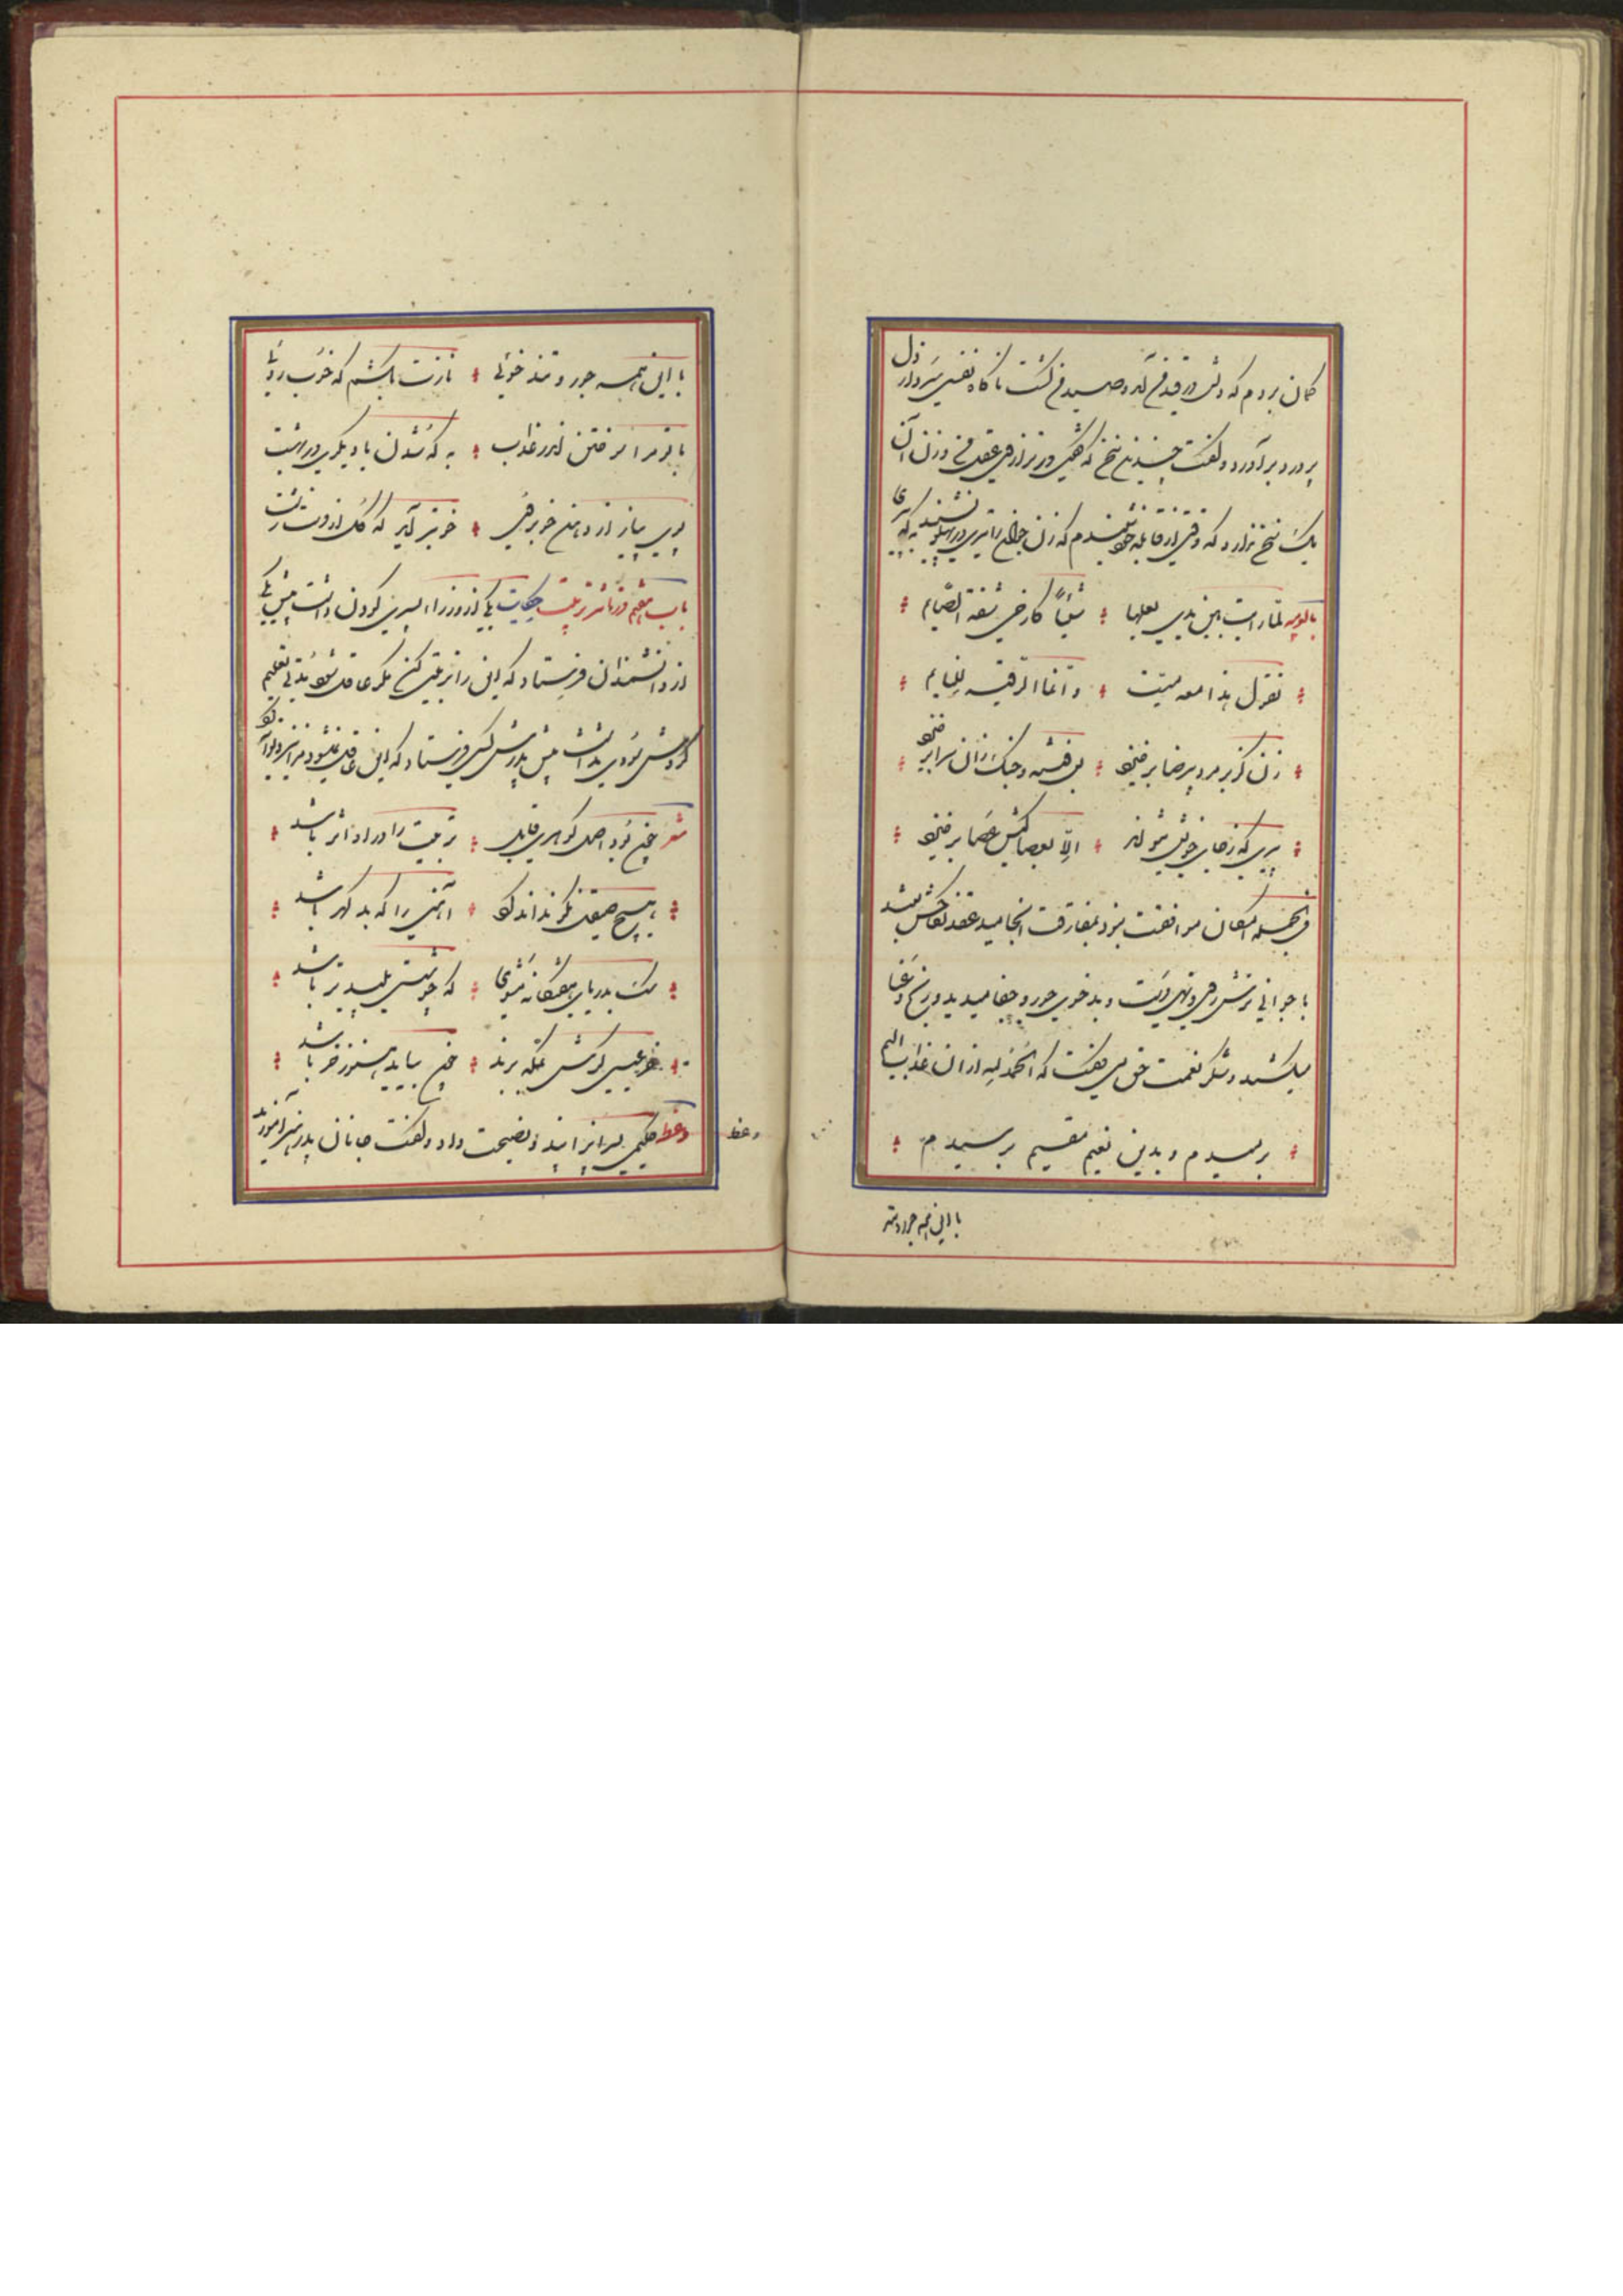 گمان بردم که دلش در قید من آمد و صید من گشت ناگاه نفسی سرد از دل
پر درد برآورد و گفت چندین سخن که گفتی در ترازوی عقل من وزن آن
یک سخن ندارد که وقتی از قابله خود شنیدم که زن جوان را تیری در پهلو نشیند به که پیری
لما رات بین یدی بعلها شیئاً کارخی شفة الصّیام
تقول هذا معه میّت و انما الرقیه للنایم
زن کز بر مرد بی رضا برخیزد بس فتنه و جنگ زان سرا برخیزد
پیری که ز جای خویش نتواند الّا بعصا کیش عصا برخیزد
فی الجمله امکان موافقت نبود بمفارقت انجامید عقد نکاحش بستند
با جوانی ترش روی تهی دست و بد خوی جور و جفا میدید و رنج و عنا
میکشید و شکر نعمت حق می گفت که الحمد لله از ان عذاب الیم
برهیدم و بدین نعیم مقیم برسیدم
با این همه جور و تند
با این همه جور و تند خوئی نازت بکشم که خوب روئی
با تو مرا سوختن اندر عذاب به که شدن با دیگری در بهشت
بوی پیاز از دهن خوبروی خوبتر آید که گل از دست زشت
باب هفتم در تأثیر تربیت حکایت یکی از وزرا را پسری کودن داشت پیش یکی
از دانشمندان فرستاد که این را تربیتی کن مگر عاقل شود مدتی تعلیم
کردش سودی نداشت پیش پدرش کس فرستاد که این عاقل نمیشود و مرا نیز دیوانه کرد
شعر چون بود اصل گوهری قابل تربیت را در او اثر باشد
هیچ صیقل نکو نداند کرد آهنی را که بد گهر باشد
سگ بدریای هفتگانه مشوی که چو شستی پلید تر باشد
خر عیسی گرش بمکه برند چون بیاید هنوز خر باشد
وعظ حکیمی پسرانرا پند و نصیحت داد و گفت جانان پدر هنر آموزید
وعظ